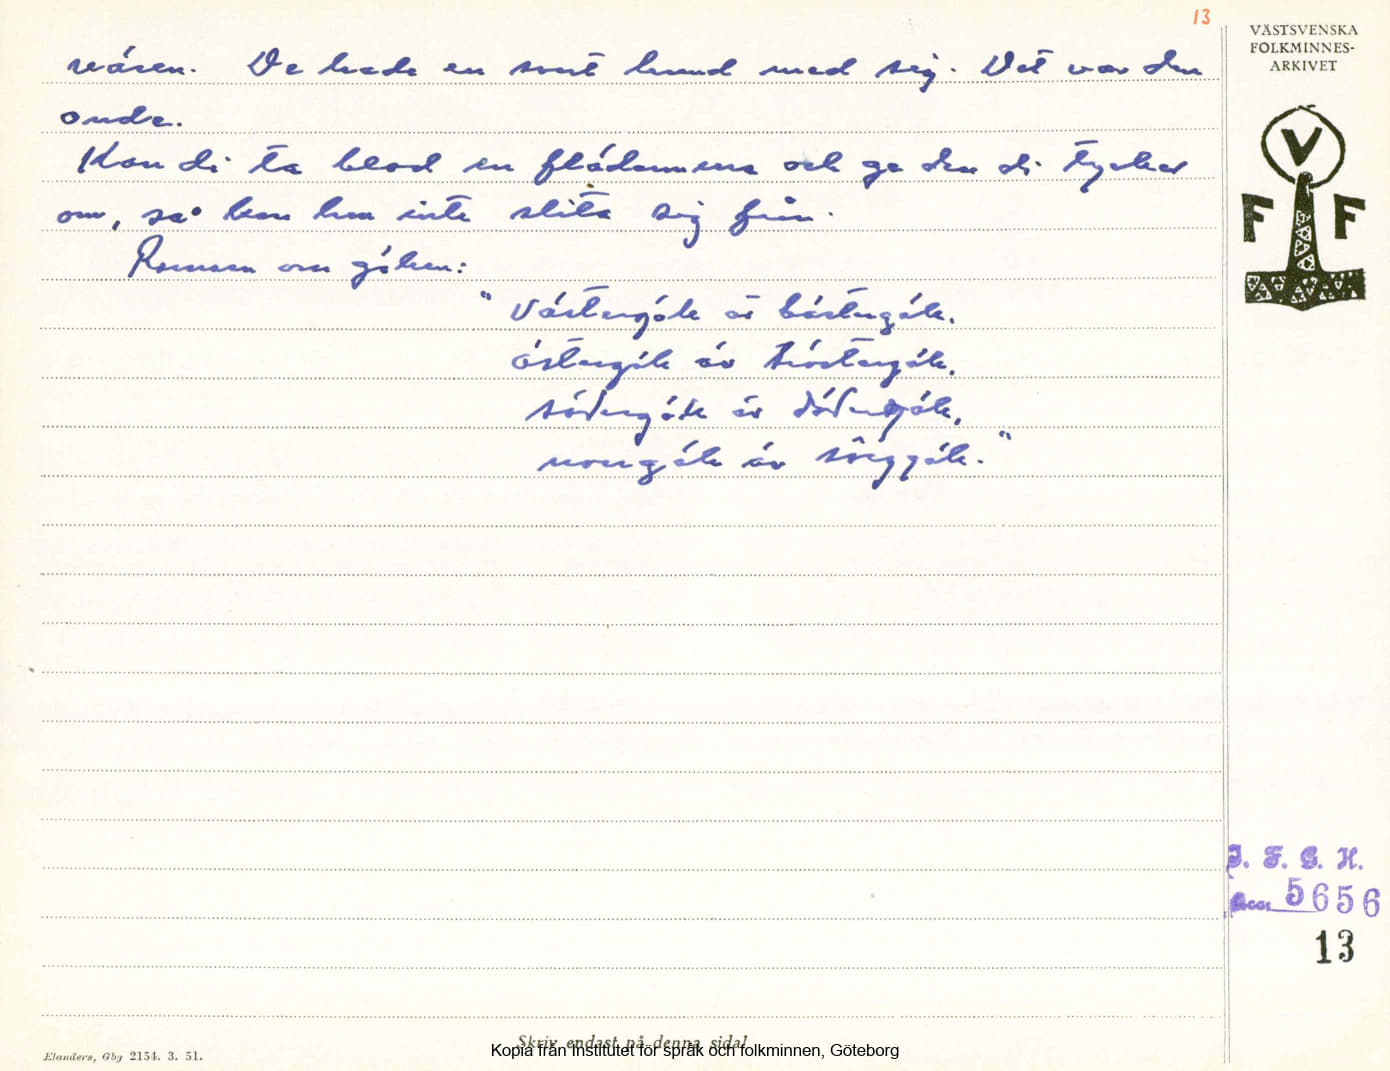 13
VÄSTSVENSKA
FOLKMINNES-
ARKIVET
väsen. De hade en svart hund med sig. Det var den
onde.
Kan di ta blod en flädermus och ge den di tycker
om, så kan hon inte slita sig från.
Ramsan om göken:
"Västergök är bästergök.
östergök äv tröstergök.
södergök är dödergök,
norrgök äv sörggök."
V
F F
I. F. G. H.
Acc. 5656
13
Skriv endast på denna sida!
Kopia från Institutet för språk och folkminnen, Göteborg
Elanders, Gbg 2154. 3. 51.